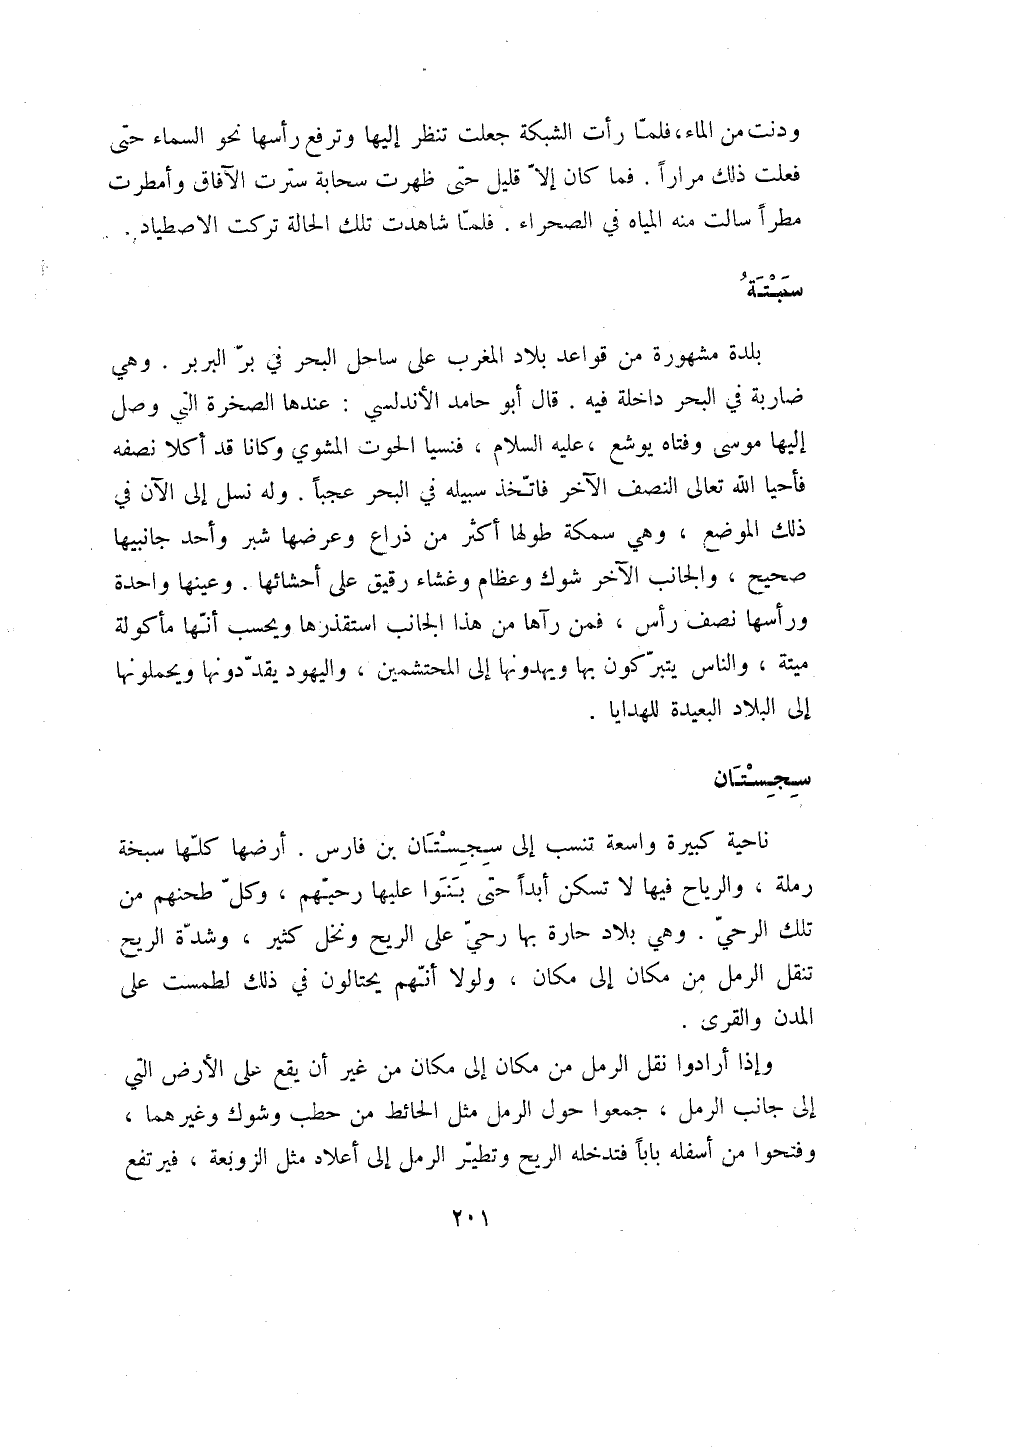 ودنت من الماء، فلمّا رأت الشبكة جعلت تنظر إليها وترفع رأسها نحو السماء حتّى
فعلت ذلك مراراً . فما كان إلاّ قليل حتّى ظهرت سحابة سترت الآفاق وأمطرت
مطراً سالت منه المياه في الصحراء . فلمّا شاهدت تلك الحالة تركت الاصطياد .
سَبْتَةُ
بلدة مشهورة من قواعد بلاد المغرب على ساحل البحر في برّ البربر . وهي
ضاربة في البحر داخلة فيه . قال أبو حامد الأندلسي : عندها الصخرة التي وصل
إليها موسى وفتاه يوشع ، عليه السلام ، فنسيا الحوت المشوي وكانا قد أكلا نصفه
فأحيا الله تعالى النصف الآخر فاتّخذ سبيله في البحر عجباً . وله نسل إلى الآن في
ذلك الموضع ، وهي سمكة طولها أكثر من ذراع وعرضها شبر وأحد جانبيها
صحيح ، والجانب الآخر شوك وعظام وغشاء رقيق على أحشائها . وعينها واحدة
ورأسها نصف رأس ، فمن رآها من هذا الجانب استقذرها ويحسب أنّها مأكولة
ميتة ، والناس يتبرّكون بها ويهدونها إلى المحتشمين ، واليهود يقدّدونها ويحملونها
إلى البلاد البعيدة للهدايا .
سِجِسْتَان
ناحية كبيرة واسعة تنسب إلى سِجِسْتَان بن فارس . أرضها كلّها سبخة
رملة ، والرياح فيها لا تسكن أبداً حتّى بَنَوا عليها رحيّهم ، وكلّ طحنهم من
تلك الرحيّ . وهي بلاد حارة بها رحيّ على الريح ونخل كثير ، وشدّة الريح
تنقل الرمل من مكان إلى مكان ، ولولا أنّهم يحتالون في ذلك لطمست على
المدن والقرى .
وإذا أرادوا نقل الرمل من مكان إلى مكان من غير أن يقع على الأرض التي
إلى جانب الرمل ، جمعوا حول الرمل مثل الحائط من حطب وشوك وغيرهما ،
وفتحوا من أسفله باباً فتدخله الريح وتطيّر الرمل إلى أعلاه مثل الزوبعة ، فيرتفع
٢٠١